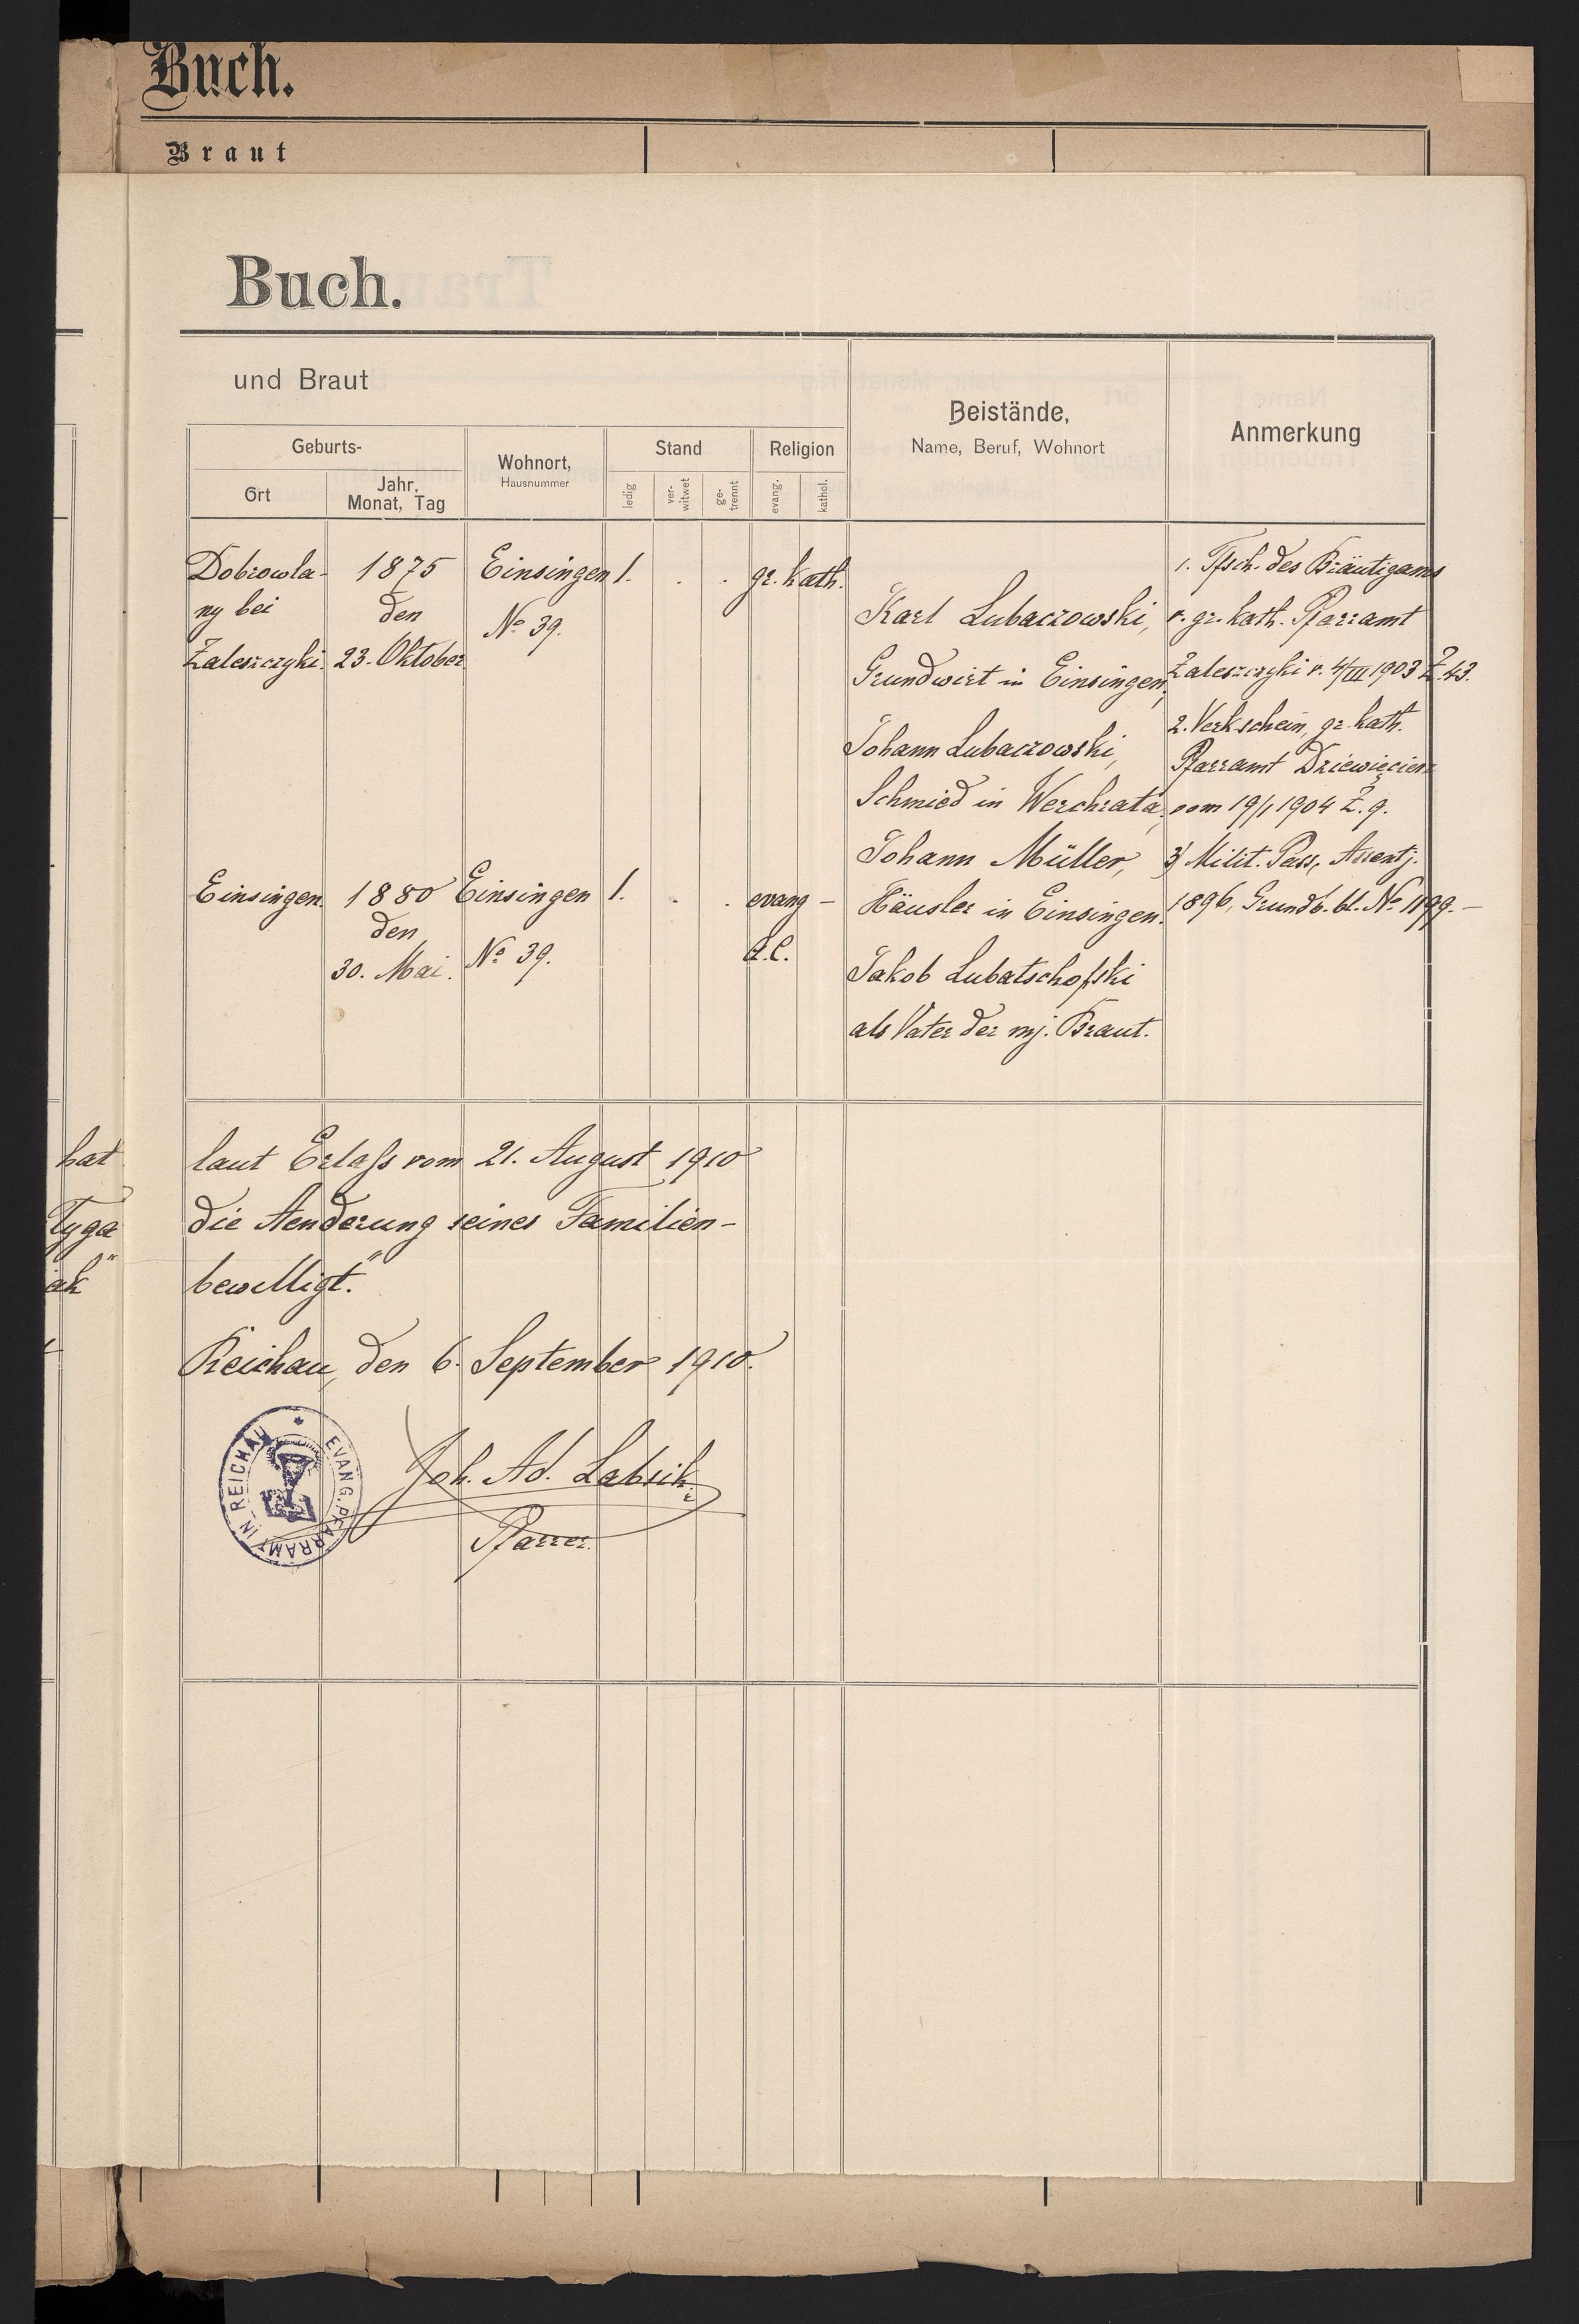 Buch.
Braut
Buch.
und Braut
Beistände,
Name, Beruf, Wohnort
Anmerkung
Geburts-
Ort
Jahr,
Monat, Tag
Wohnort,
Hausnummer
Stand
ledig
ver-
witwet
ge-
trennt
Religion
evang.
kathol.
Dobrowla- 1875 Einsingen 1. . . gr. kath.
ny bei den No 39.
Zaleszczyki 23. Oktober
Einsingen. 1880 Einsingen 1. . . evang -
den
30. Mai. No 39. A.C.
Karl Lubaczowski,
Grundwirt in Einsingen,
Johann Lubaczowski,
Schmied in Werchrata,
Johann Müller,
Häusler in Einsingen.
Jakob Lubatschofski
als Vater der mj. Braut.
1. Tfsch. des Bräutigams
v. gr. kath. Pfarramt
Zaleszczyki v. 4/III 1903 Z. 43.
2. Verkschein, gr. kath.
Pfarramt Dziewięcierz
vom 19/1 1904 Z. 9.
3) Milit. Pass, Assentj.
1896, Grundb. bl. No 1199. -
hat laut Erlaß vom 21. August 1910
Tyga die Aenderung seines Familien-
ak" bewilligt."
Reichau, den 6. September 1910.
EVANG. PFARRAMT IN REICHAU
Joh. Ad. Labsik
Pfarrer.